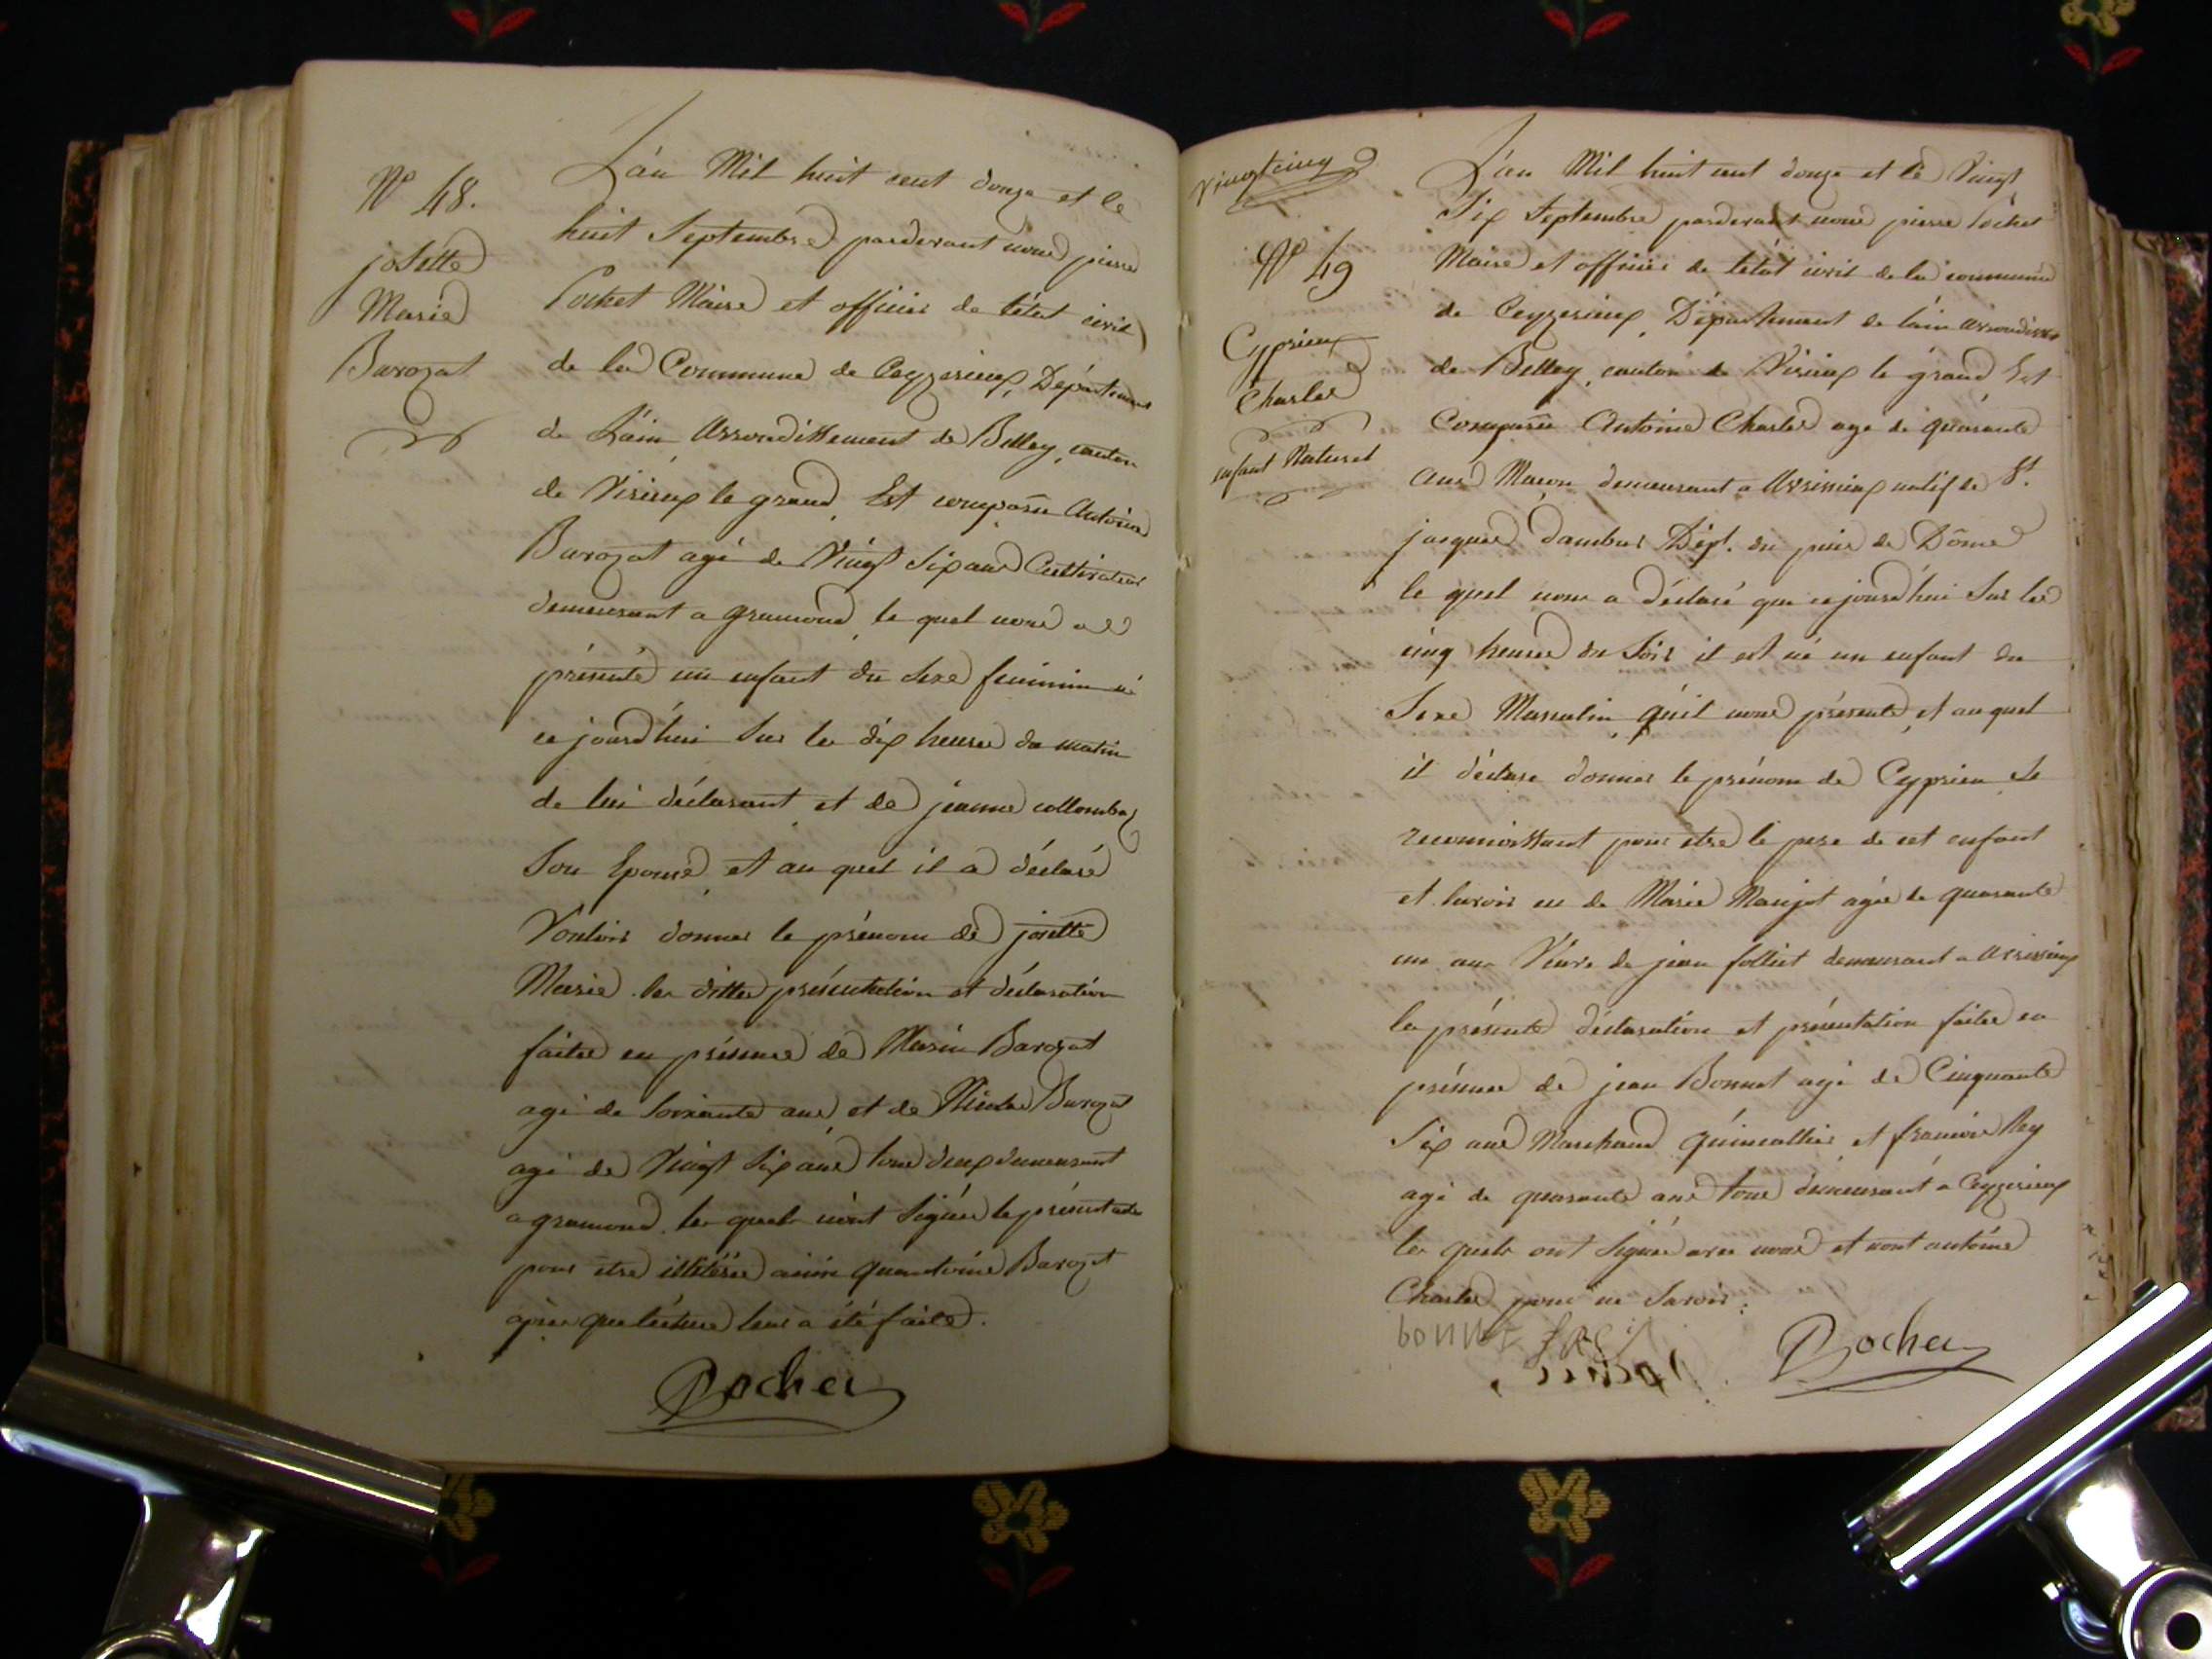 N° 48.
josette
Marie
Barozat
L'an Mil huit cent douze et le
huit Septembre pardevant nous pierre
Pochet Maire et officier de l'état civil
de la Commune de Ceyzerieux, Département
de L'ain, Arrondissement de Belley, canton
de Virieux le grand, Est comparu Antoine
Barozat agé de Vingt Six ans Cultivateur
demeurant a gramond, le quel nous a
présenté un enfant du Sexe feminin né
ce jourd'hui Sur les dix heures du matin
de lui déclarant et de jeanne collomb
Son Epouse, et au quel il a déclaré
Vouloir donner le prénom de josette
Marie. les dittes présentation et déclaration
faites en présence de Marin Barozat
agé de Soixante ans, et de Nicolas Barozat
agé de Vingt Six ans tous deux demeurant
a gramond, les quels n'ont Signés le présent acte
pour etre illitérés ainsi qu'antoine Barozat
après que lecture leur a été faite.
Pochet
Vingt cinq
N° 49
Cyprien
Charles
enfant Naturel
L'an Mil huit cent douze et le Vingt
Six Septembre pardevant nous pierre Pochet
Maire et officier de l'état civil de la commune
de Ceyzerieux, Département de l'ain arrondisse
de Belley, canton de Virieux le grand Est
Comparu Antoine Charles agé de quarante
ans Maçon demeurant a Avrissieux natif de St.
jacques d'ambur Dépt. du puis de Dôme
le quel nous a déclaré que ce jourd'hui Sur les
cinq heures du Soir il est né un enfant du
Sexe Masculin qu'il nous présente, et au quel
il déclare donner le prénom de Cyprien Se
reconnoissant pour etre le pere de cet enfant
et l'avoir eu de Marie Maujot agée de quarante
un ans Veuve de jean folliet demeurant a Avrissieux
la présente déclaration et présentation faites en
présence de jean Bonnet agé de Cinquante
Six ans Marchand Quincallier et francois Rey
agé de quarante ans tous demeurant a Ceyzerieux
les quels ont Signés avec nous et non antoine
Charles pour ne Savoir.
bonnet Rey
Pochet